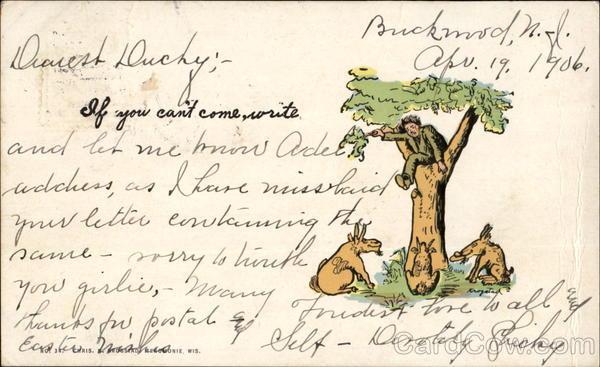 Buckwood, N-J.
Apr. 19, 1906.
Dearest Duchy;-
If you can't come, write
and let me know Adel
address, as I have misslaid
your letter containing the
same - sorry to trouble
you girlie, - Many
thanks for postal &
Easter wishes
Fondest love to all and
Self - Dorothy
CHRIS. MENOMONIE, WIS.
CardCow.com